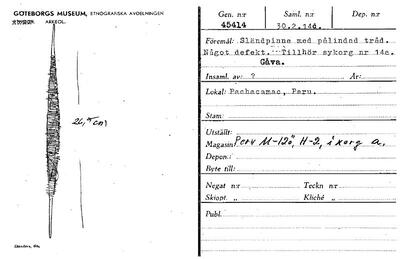 GÖTEBORGS MUSEUM, ETNOGRAFISKA AVDELNINGEN
ARKEOL.
26,5 cm
Gen. n:r Saml. n:r Dep. n:r
45414 30.2.14d.
Föremål: Sländpinne med pålindad tråd.
Något defekt. Tillhör sykorg nr 14a.
Gåva.
Insaml. av: ? År:
Lokal: Pachacamac, Peru.
Stam:
Utställt:
Magasin: Peru M-120, H-2, i korg a.
Depon.:
Byte till:
Negat n:r Teckn n:r
Skiopt. „ Kliché „
Publ.